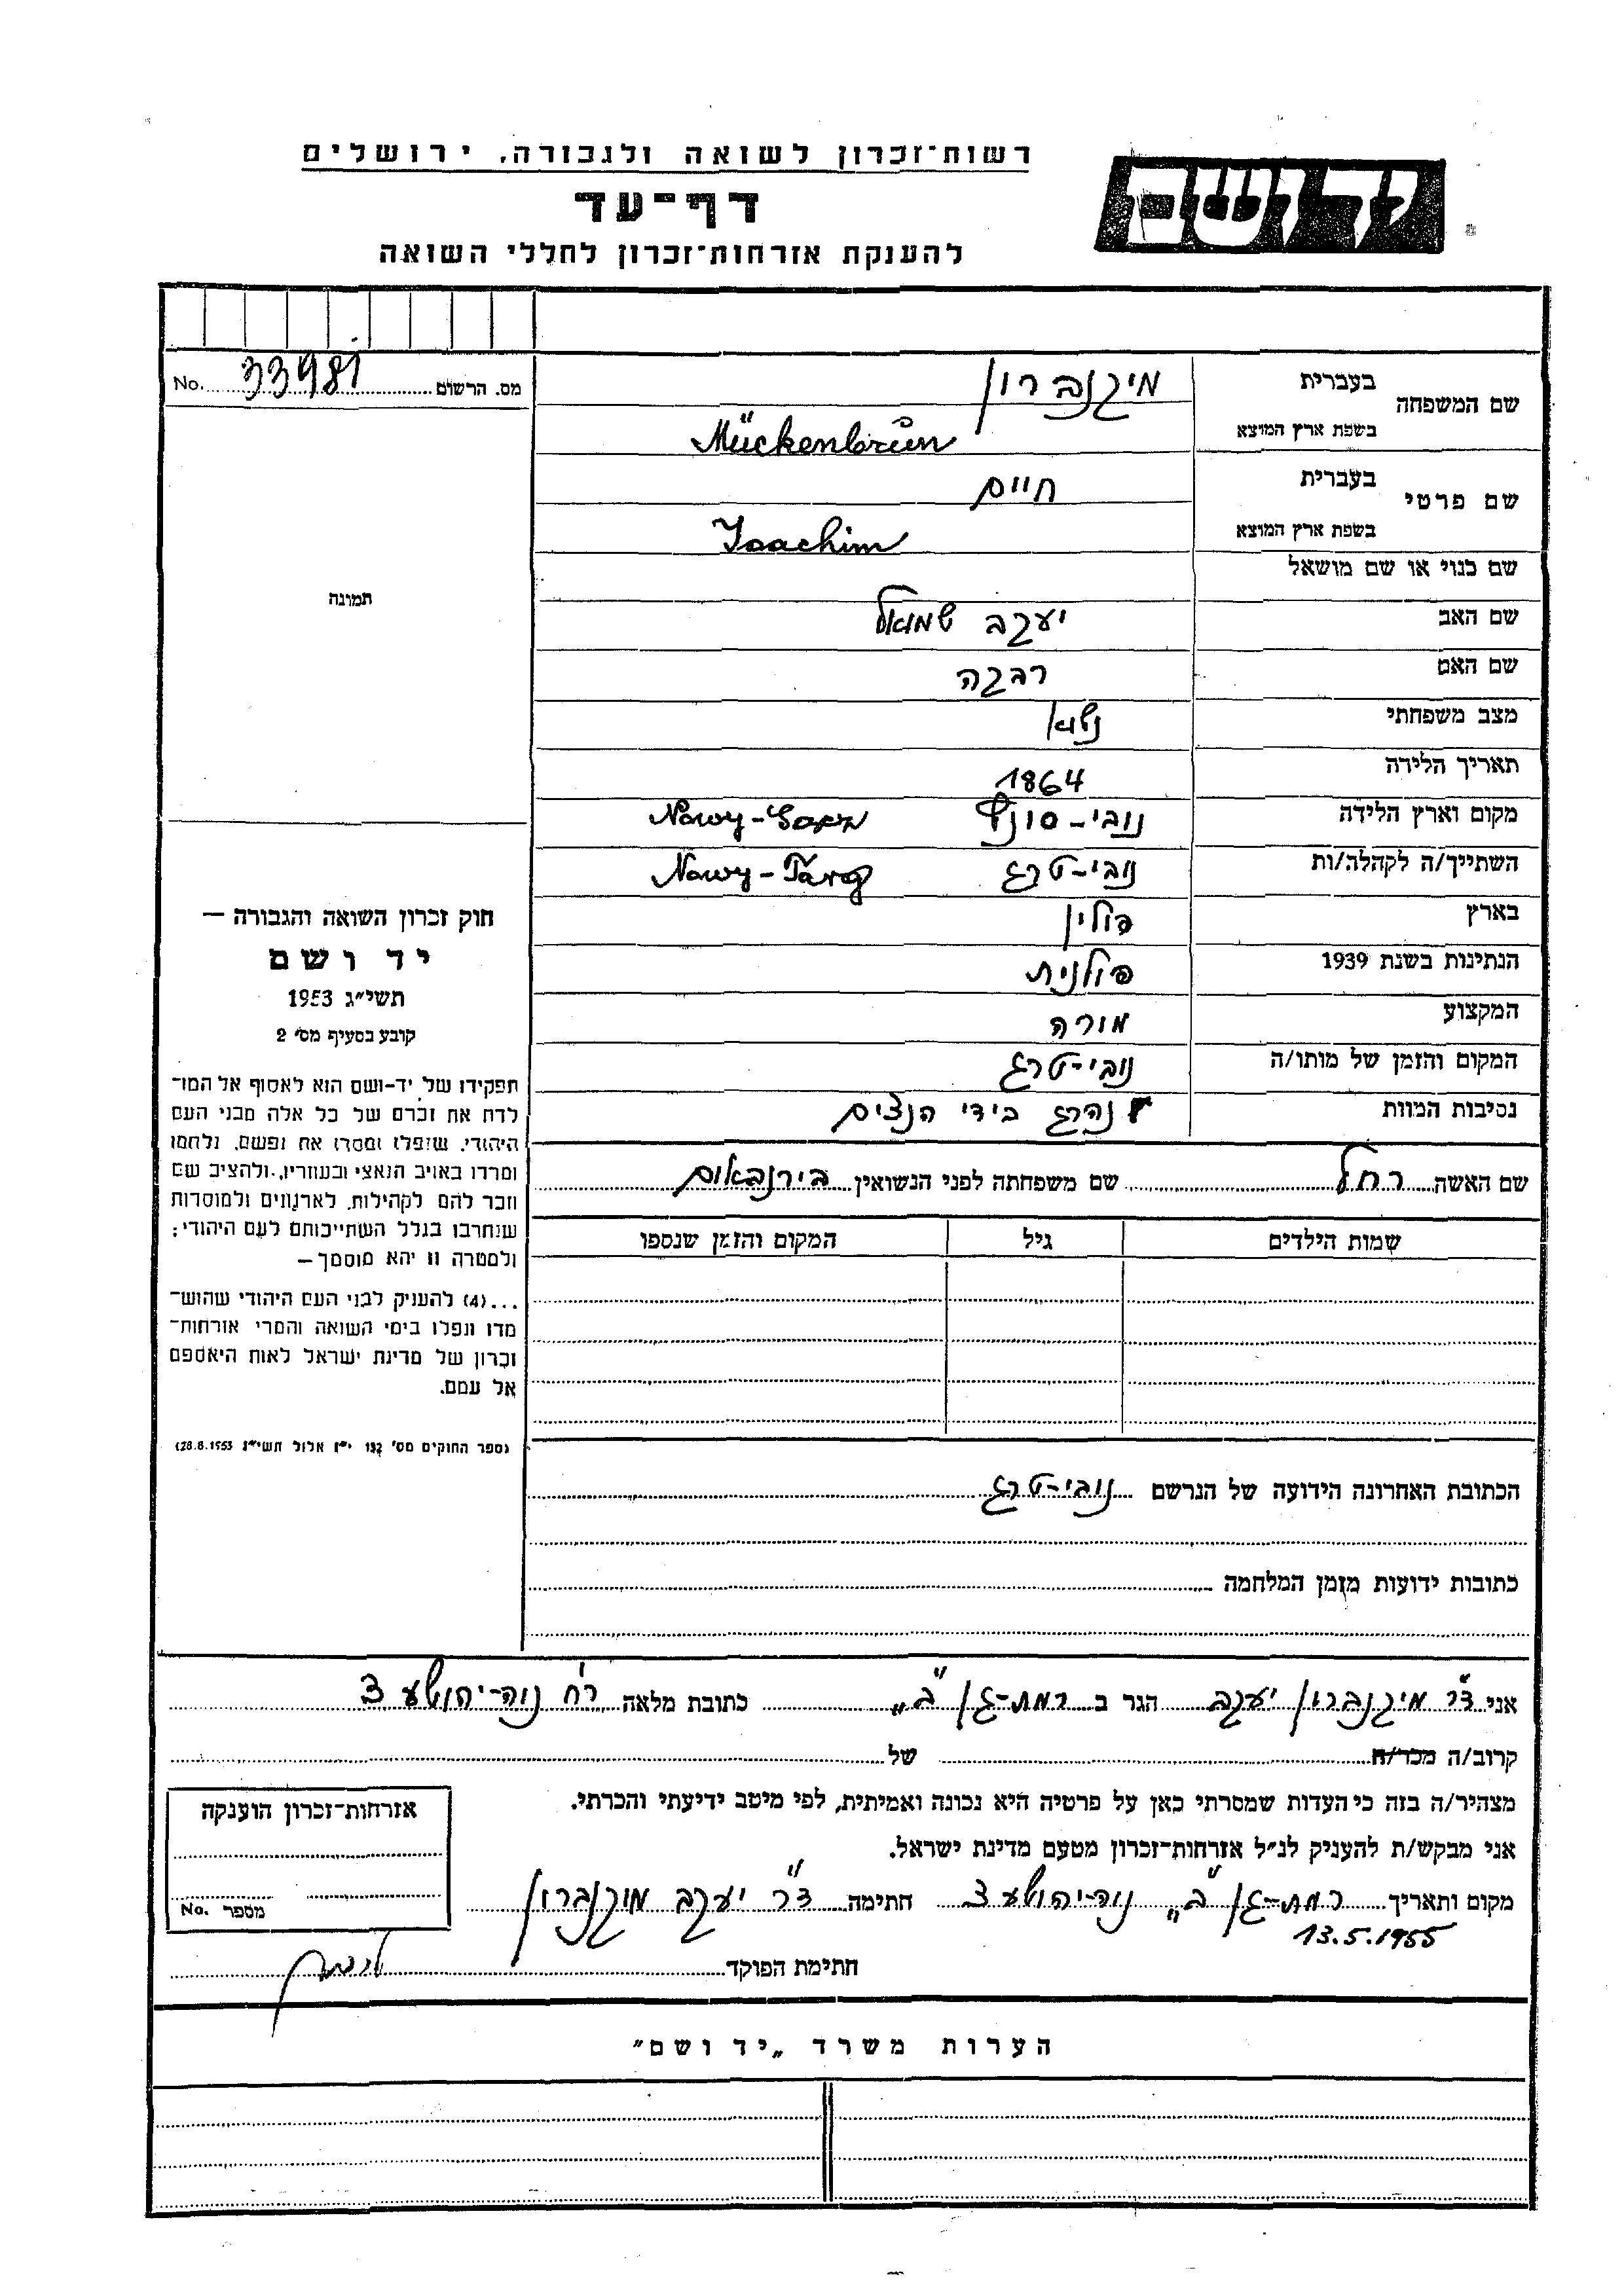 רשות־זכרון לשואה ולגבורה, ירושלים
יד ושם
דף־עד
להענקת אזרחות־זכרון לחללי השואה
מס. הרשום 33981 No.
שם המשפחה
בעברית מיקנברון
בשפת ארץ המוצא Mückenbrün
שם פרטי
בעברית חיים
בשפת ארץ המוצא Joachim
שם כנוי או שם מושאל
תמונה
שם האב יעקב שמואל
שם האם רבקה
מצב משפחתי נשוא
תאריך הלידה 1864
מקום וארץ הלידה נובי-סונץ Nowy-Sącz
השתייך/ה לקהלה/ות נובי-טרג Nowy-Targ
בארץ פולין
הנתינות בשנת 1939 פולנית
המקצוע מורה
המקום והזמן של מותו/ה נובי-טרג
נסיבות המוות נהרג בידי הנצים
שם האשה רחל שם משפחתה לפני הנשואין בירנבאום
שמות הילדים גיל המקום והזמן שנספו
חוק זכרון השואה והגבורה —
יד ושם
תשי״ג 1953
קובע בסעיף מס׳ 2
תפקידו של יד-ושם הוא לאסוף אל המו־
לדת את זכרם של כל אלה מבני העם
היהודי, שנפלו ומסרו את נפשם, נלחמו
ומרדו באויב הנאצי ובעוזריו, ולהציב שם
וזכר להם לקהילות, לארגונים ולמוסדות
שנחרבו בגלל השתייכותם לעם היהודי;
ולמטרה זו יהא מוסמך —
...(4) להעניק לבני העם היהודי שהוש־
מדו ונפלו בימי השואה והמרי אזרחות־
זכרון של מדינת ישראל לאות היאספם
אל עמם.
(ספר החוקים מס׳ 132 י״ז אלול תשי״ג 28.8.1953)
הכתובת האחרונה הידועה של הנרשם נובי-טרג
כתובות ידועות מזמן המלחמה
אני ד״ר מיקנברון יעקב הגר ב רמת-גן „ב״ כתובת מלאה רח׳ נוה-יהושע 3
קרוב/ה מכר/ה של
מצהיר/ה בזה כי העדות שמסרתי כאן על פרטיה היא נכונה ואמיתית, לפי מיטב ידיעתי והכרתי.
אני מבקש/ת להעניק לנ״ל אזרחות־זכרון מטעם מדינת ישראל.
מקום ותאריך רמת-גן „ב״ נוה-יהושע 3 חתימה ד״ר יעקב מוקנברון
13.5.1955
חתימת הפוקד
אזרחות־זכרון הוענקה
מספר No.
הערות משרד „יד ושם״